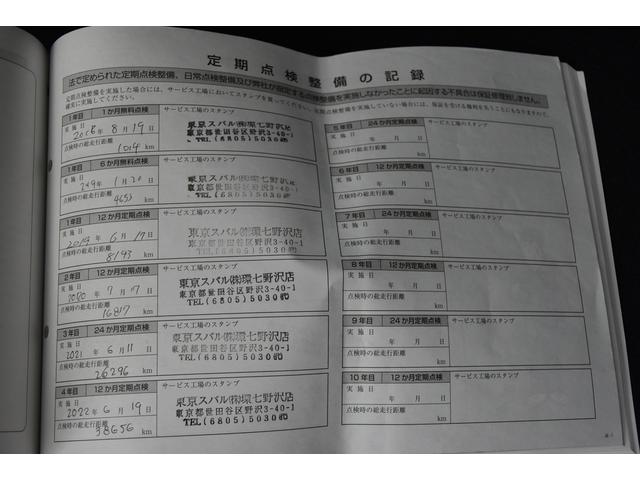 定期点検整備の記録
法で定められた定期点検整備、日常点検整備及び弊社が指定する点検整備を実施しなかったことに起因する不具合は保証修理致しません。
定期点検整備を実施した場合には、サービス工場においてスタンプを貰ってください。定期点検整備を実施していない場合には、保証を受ける権利を失うこともなりますので、
確実に実施してください。
1年目 1か月無料点検 サービス工場のスタンプ
実施日 2018年 8月 19日
点検時の総走行距離 1014 km
東京スバル㈱環七野沢店
東京都世田谷区野沢3-40-1
TEL(6805)5030㈹
1年目 6か月無料点検 サービス工場のスタンプ
実施日
年 1月 日
点検時の総走行距離 4653 km
東京スバル㈱環七野沢店
東京都世田谷区野沢3-40-1
TEL(6805)5030㈹
1年目 12か月定期点検 サービス工場のスタンプ
実施日
2019年 6月 17日
点検時の総走行距離 8193 km
東京スバル㈱環七野沢店
東京都世田谷区野沢3-40-1
TEL(6805)5030㈹
2年目 12か月定期点検 サービス工場のスタンプ
実施日
2020年 7月 17日
点検時の総走行距離 16817 km
東京スバル㈱環七野沢店
東京都世田谷区野沢3-40-1
TEL(6805)5030㈹
3年目 24か月定期点検 サービス工場のスタンプ
実施日
2021年 6月 11日
点検時の総走行距離 26296 km
東京スバル㈱環七野沢店
東京都世田谷区野沢3-40-1
TEL(6805)5030㈹
4年目 12か月定期点検 サービス工場のスタンプ
実施日
2022年 6月 19日
点検時の総走行距離 38656 km
東京スバル㈱環七野沢店
東京都世田谷区野沢3-40-1
TEL(6805)5030㈹
5年目 24か月定期点検 サービス工場のスタンプ
実施日
年 月 日
点検時の総走行距離 km
6年目 12か月定期点検 サービス工場のスタンプ
実施日
年 月 日
点検時の総走行距離 km
7年目 24か月定期点検 サービス工場のスタンプ
実施日
年 月 日
点検時の総走行距離 km
8年目 12か月定期点検 サービス工場のスタンプ
実施日
年 月 日
点検時の総走行距離 km
9年目 24か月定期点検 サービス工場のスタンプ
実施日
年 月 日
点検時の総走行距離 km
10年目 12か月定期点検 サービス工場のスタンプ
実施日
年 月 日
点検時の総走行距離 km